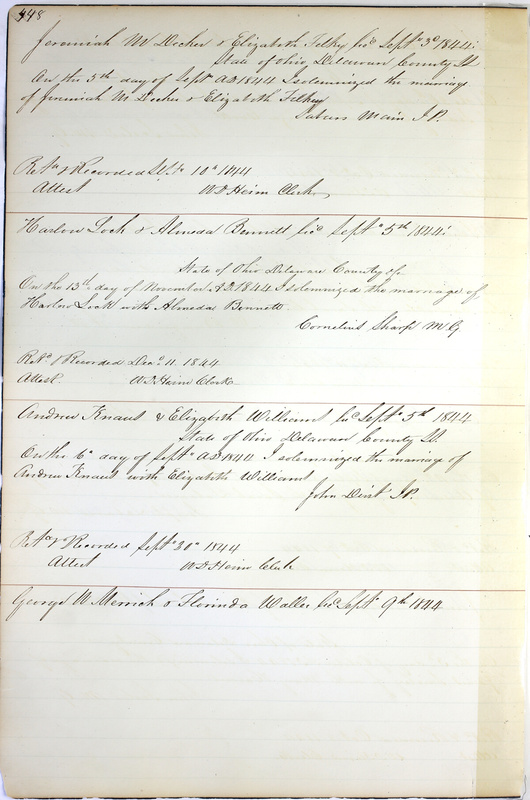 448
Jeremiah M Decker & Elizabeth Felkey Lic Sept 3d 1844.
State of Ohio, Delaware County SS
On the 5th day of Sept AD 1844 I solemnized the marriage
of Jeremiah M Decker & Elizabeth Felkey
Main J.P.
Retd & Recorded Sept 10th 1844
Attest W D Heim Clerk
Harlow Lock & Almeda Bennett Lic Sept 5th 1844.
State of Ohio Delaware County ss
On the 13th day of November AD 1844 I solemnized the marriage of
Harlow Lock with Almeda Bennett
Cornelius Sharp M G
Retd & Recorded Dec 11 1844
Attest W D Heim Clerk
Andrew Knaus & Elizabeth Williams Lic Sept 5th 1844
State of Ohio Delaware County SS
On the 6th day of Sept AD 1844 I solemnized the marriage of
Andrew Knaus with Elizabeth Williams
John J.P.
Retd & Recorded Sept 20th 1844
Attest W D Heim Clerk
George W Merrick & Florinda Waller Lic Sept 9th 1844